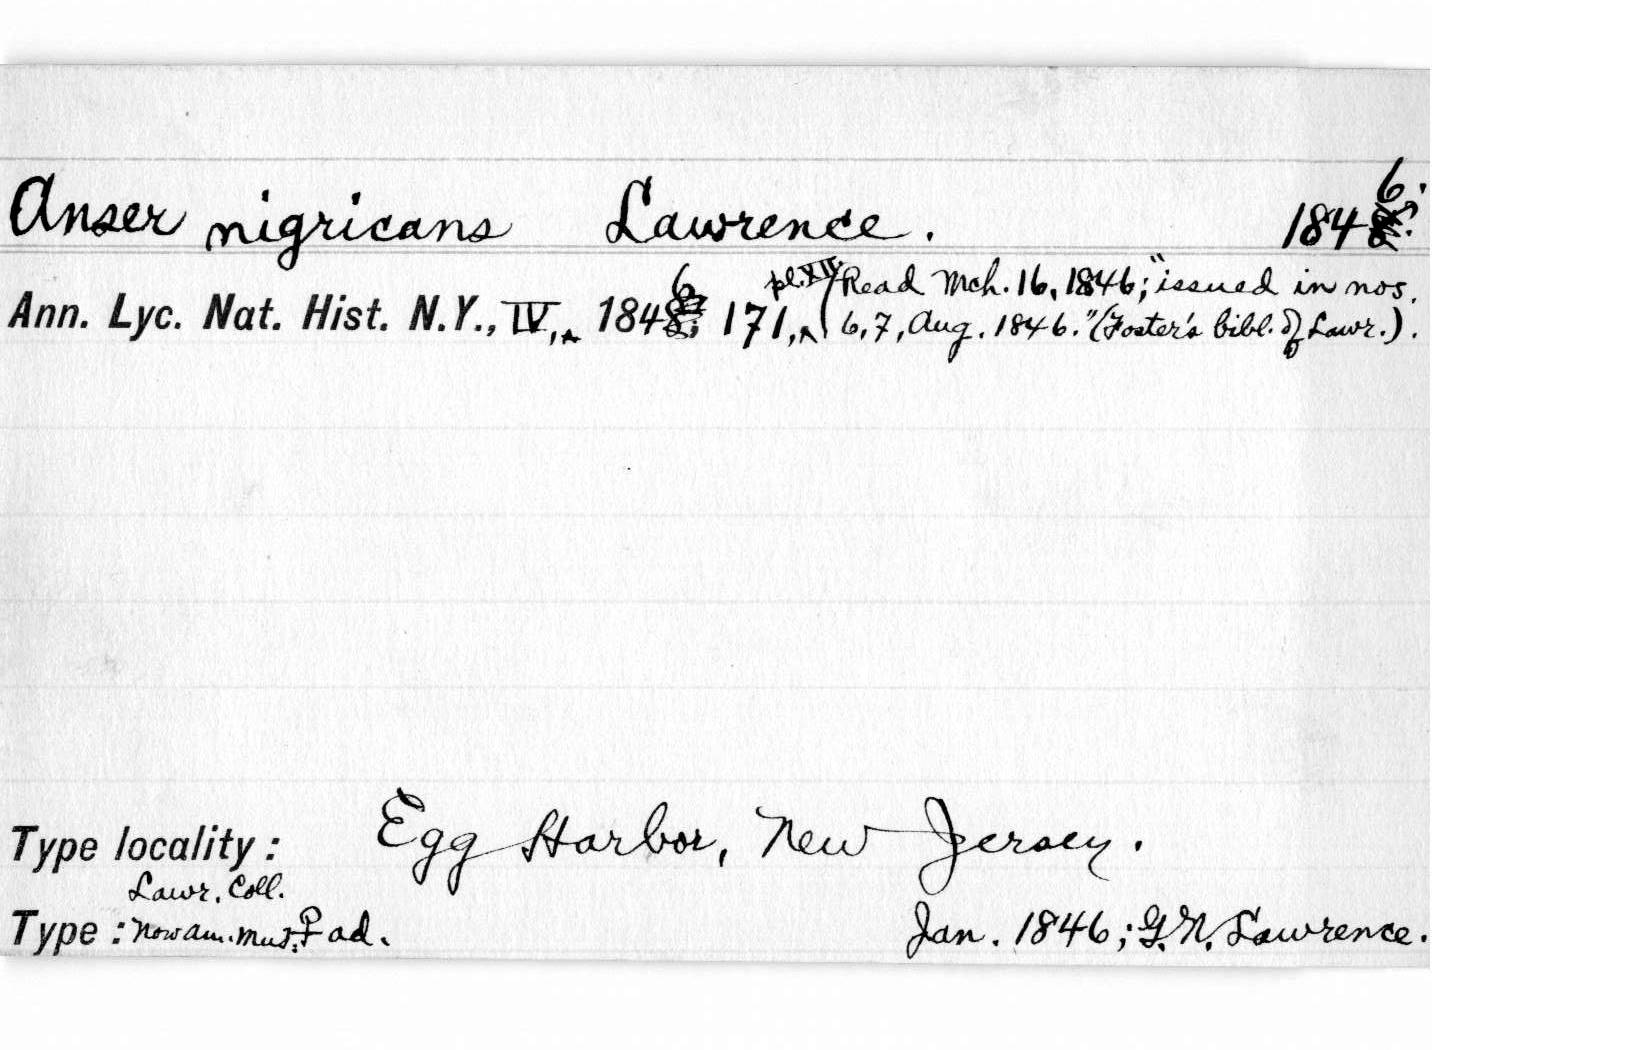 Anser nigricans Lawrence. 1846.
Ann. Lyc. Nat. Hist. N.Y., IV, 1846, 171, pl. XII (Read Mch. 16, 1846; "issued in nos.
6, 7, Aug. 1846." (Foster's bibl. of Lawr.).
Type locality: Egg Harbor, New Jersey.
Lawr. Coll.
Type: now Am. Mus. ♀ ad. Jan. 1846; G. N. Lawrence.